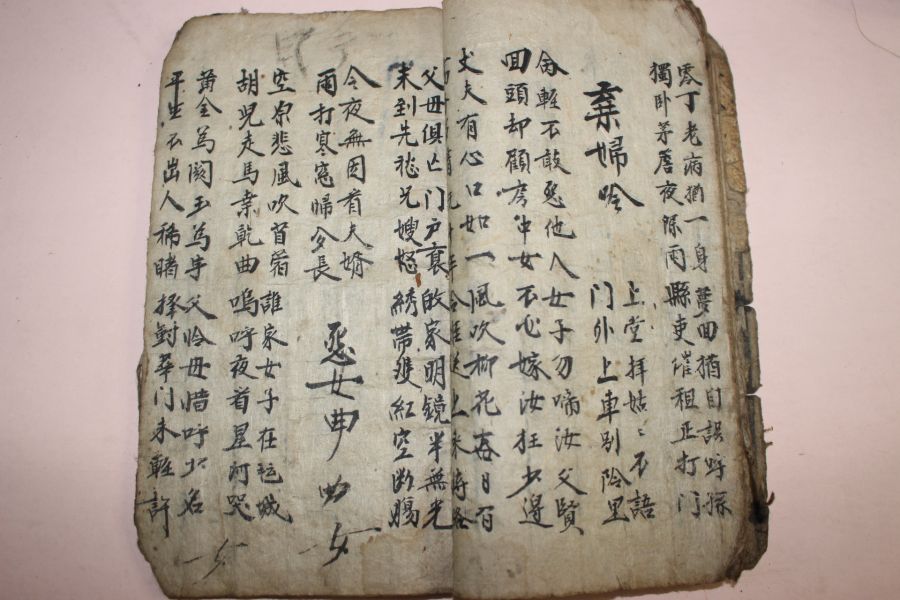 零丁老病猶一身 夢回猶自誤呼孫
獨卧茅簷夜深雨 縣吏催租正打門
棄婦吟
上堂拜姑〻不語
門外上車別隣里
輕不敢怨他人女子勿啼汝父賢
回頭却顧房中女不必嫁汝狂少
丈夫有心口如一風吹柳花每日百
父母俱亡門户衰 家明鏡半無光
末到先愁兄嫂怒 綉帶雙紅空斷腸
今夜無因看夫婿
雨打寒窓歸夢長
怨女曲
女
空原悲風吹苜蓿 誰家女子在城
胡兒走馬棄乾曲 嗚呼夜看星河哭
黄金為闕玉為 父怜母惜呼小名
平生不出人稀睹 擇對門未輕許
女